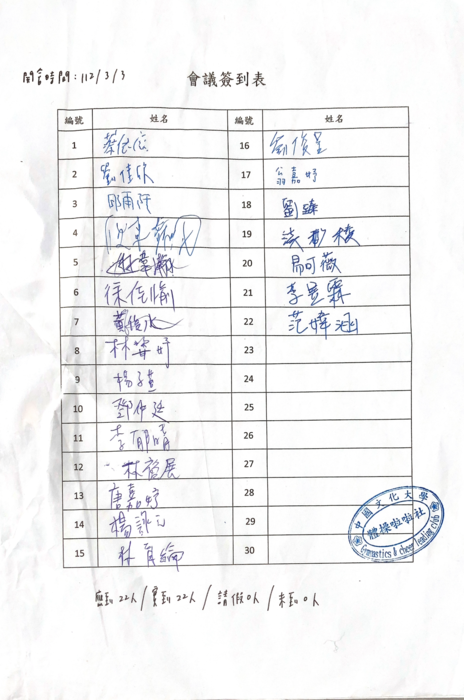 開會時間:112/3/3
會議簽到表
編號 姓名 編號 姓名
1 蔡依宸 16 劉俊呈
2 劉佳欣 17 翁嘉妤
3 邱雨阡 18 劉臻
4 19
5 20 易可薇
6 徐佳愉 21 李昱霖
7 22 范媁涵
8 林姿妤 23
9 楊子萱 24
10 鄧仲廷 25
11 李郁晴 26
12 林宿展 27
13 唐嘉婷 28
14 楊詠 29
15 林 30
中國文化大學
體操啦啦社
Gymnastics & cheer leading club
應到22人/實到22人/請假0人/未到0人